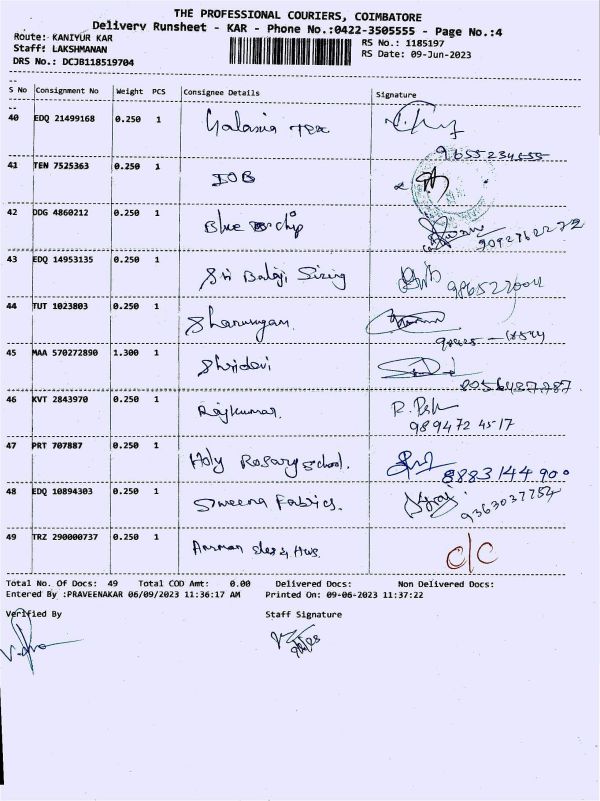 THE PROFESSIONAL COURIERS, COIMBATORE
Delivery Runsheet - KAR - Phone No.:0422-3505555 - Page No.:4
Route: KANIYUR KAR
RS No.: 1185197
Staff: LAKSHMANAN
RS Date: 09-Jun-2023
DRS No.: DCJB118519704
S No Consignment No Weight PCS Consignee Details Signature
40 EDQ 21499168 0.250 1 Galaxia Tex
9655234555
41 TEN 7525363 0.250 1 IOB
42 DDG 4860212 0.250 1 Blue chip
9092762272
43 EDQ 14953135 0.250 1 Sri Balaji Sizing
44 TUT 1023803 0.250 1 Shanmugam.
45 MAA 570272890 1.300 1 Shridevi
8056487787
46 KVT 2843970 0.250 1 Rajkumar.
9894724517
47 PRT 707887 0.250 1 Holy Rosary School.
8883144900
48 EDQ 10894303 0.250 1 Sweena Fabrics.
9363037754
49 TRZ 290000737 0.250 1 Amman c/c
Total No. Of Docs: 49 Total COD Amt: 0.00 Delivered Docs: Non Delivered Docs:
Entered By :PRAVEENAKAR 06/09/2023 11:36:17 AM Printed On: 09-06-2023 11:37:22
Verified By Staff Signature